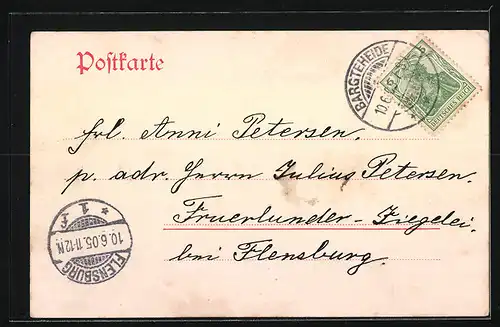 Postkarte
BARGTEHEIDE
10.6.
DEUTSCHES REICH
Frl. Anni Petersen.
p. adr. Herrn Julius Petersen.
Fruerlunder-Ziegelei.
bei Flensburg.
* 1 f
10.6.05.11-12N
FLENSBURG